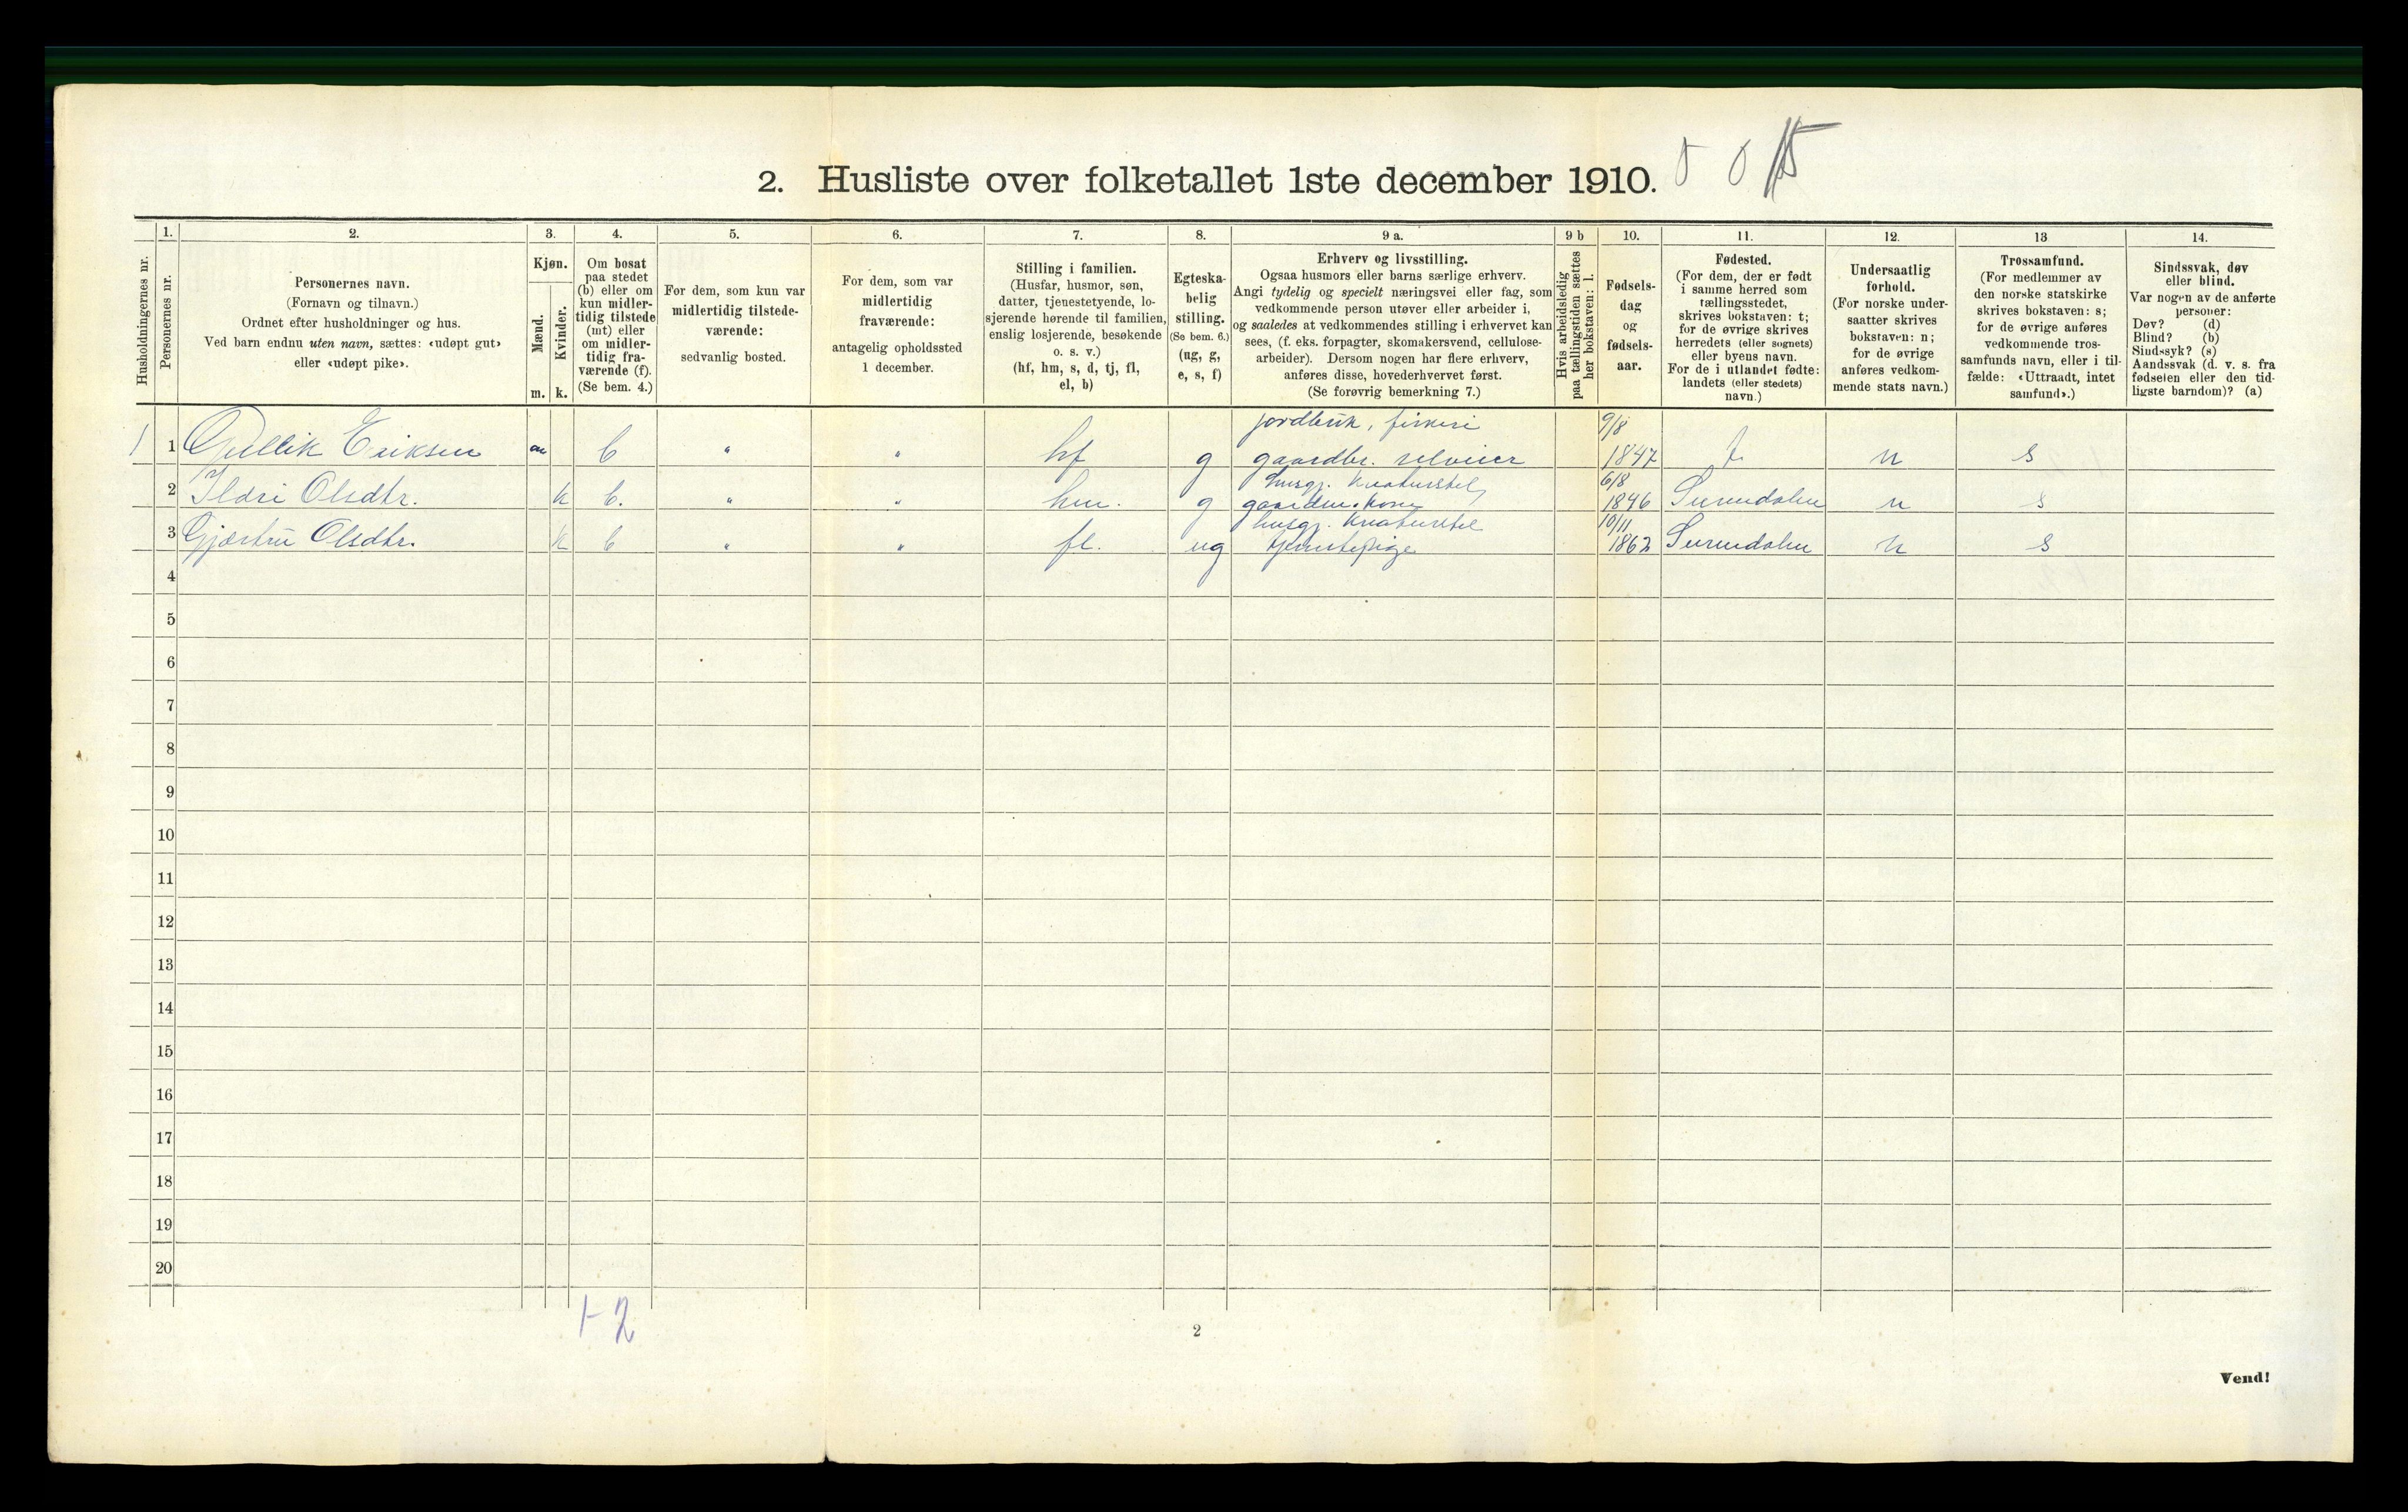 2. Husliste over folketallet 1ste december 1910.
Husholdningernes nr.
1.
Personernes nr.
2.
Personernes navn.
(Fornavn og tilnavn.)
Ordnet efter husholdninger og hus.
Ved barn endnu uten navn, sættes: «udøpt gut»
eller «udøpt pike».
3.
Kjøn.
Mænd.
Kvinder.
m. k.
4.
Om bosat
paa stedet
(b) eller om
kun midler-
tidig tilstede
(mt) eller
om midler-
tidig fra-
værende (f).
(Se bem. 4.)
5.
For dem, som kun var
midlertidig tilstede-
værende:
sedvanlig bosted.
6.
For dem, som var
midlertidig
fraværende:
antagelig opholdssted
1 december.
7.
Stilling i familien.
(Husfar, husmor, søn,
datter, tjenestetyende, lo-
sjerende hørende til familien,
enslig losjerende, besøkende
o. s. v.)
(hf, hm, s, d, tj, fl,
el, b)
8.
Egteska-
belig
stilling.
(Se bem. 6.)
(ug, g,
e, s, f)
9 a.
Erhverv og livsstilling.
Ogsaa husmors eller barns særlige erhverv.
Angi tydelig og specielt næringsvei eller fag, som
vedkommende person utøver eller arbeider i,
og saaledes at vedkommendes stilling i erhvervet kan
sees, (f. eks. forpagter, skomakersvend, cellulose-
arbeider). Dersom nogen har flere erhverv,
anføres disse, hovederhvervet først.
(Se forøvrig bemerkning 7.)
9 b
Hvis arbeidsledig
paa tællingstiden sættes
her bokstaven: l.
10.
Fødsels-
dag
og
fødsels-
aar.
11.
Fødested.
(For dem, der er født
i samme herred som
tællingsstedet,
skrives bokstaven: t;
for de øvrige skrives
herredets (eller sognets)
eller byens navn.
For de i utlandet fødte:
landets (eller stedets)
navn.)
12.
Undersaatlig
forhold.
(For norske under-
saatter skrives
bokstaven: n;
for de øvrige
anføres vedkom-
mende stats navn.)
13
Trossamfund.
(For medlemmer av
den norske statskirke
skrives bokstaven: s;
for de øvrige anføres
vedkommende tros-
samfunds navn, eller i til-
fælde: «Uttraadt, intet
samfund».)
14.
Sindssvak, døv
eller blind.
Var nogen av de anførte
personer:
Døv? (d)
Blind? (b)
Sindssyk? (s)
Aandssvak (d. v. s. fra
fødselen eller den tid-
ligste barndom)? (a)
jordbruk, fiskeri 9/8
1 1 Gullik Eriksen m b " " hf g gaardbr. selveier 1847 t. n s
husgj. Kreaturstel 6/8
2 Ildri Olsdtr. k b. " " hm. g gaardm. kone 1846 Surendalen n s
husgj. Kreaturstel 10/11
3 Gjærtru Olsdtr. k b " " fl. ug tjenstepige 1862 Surendalen n s
4
5
6
7
8
9
10
11
12
13
14
15
16
17
18
19
20
1-2
2
Vend!